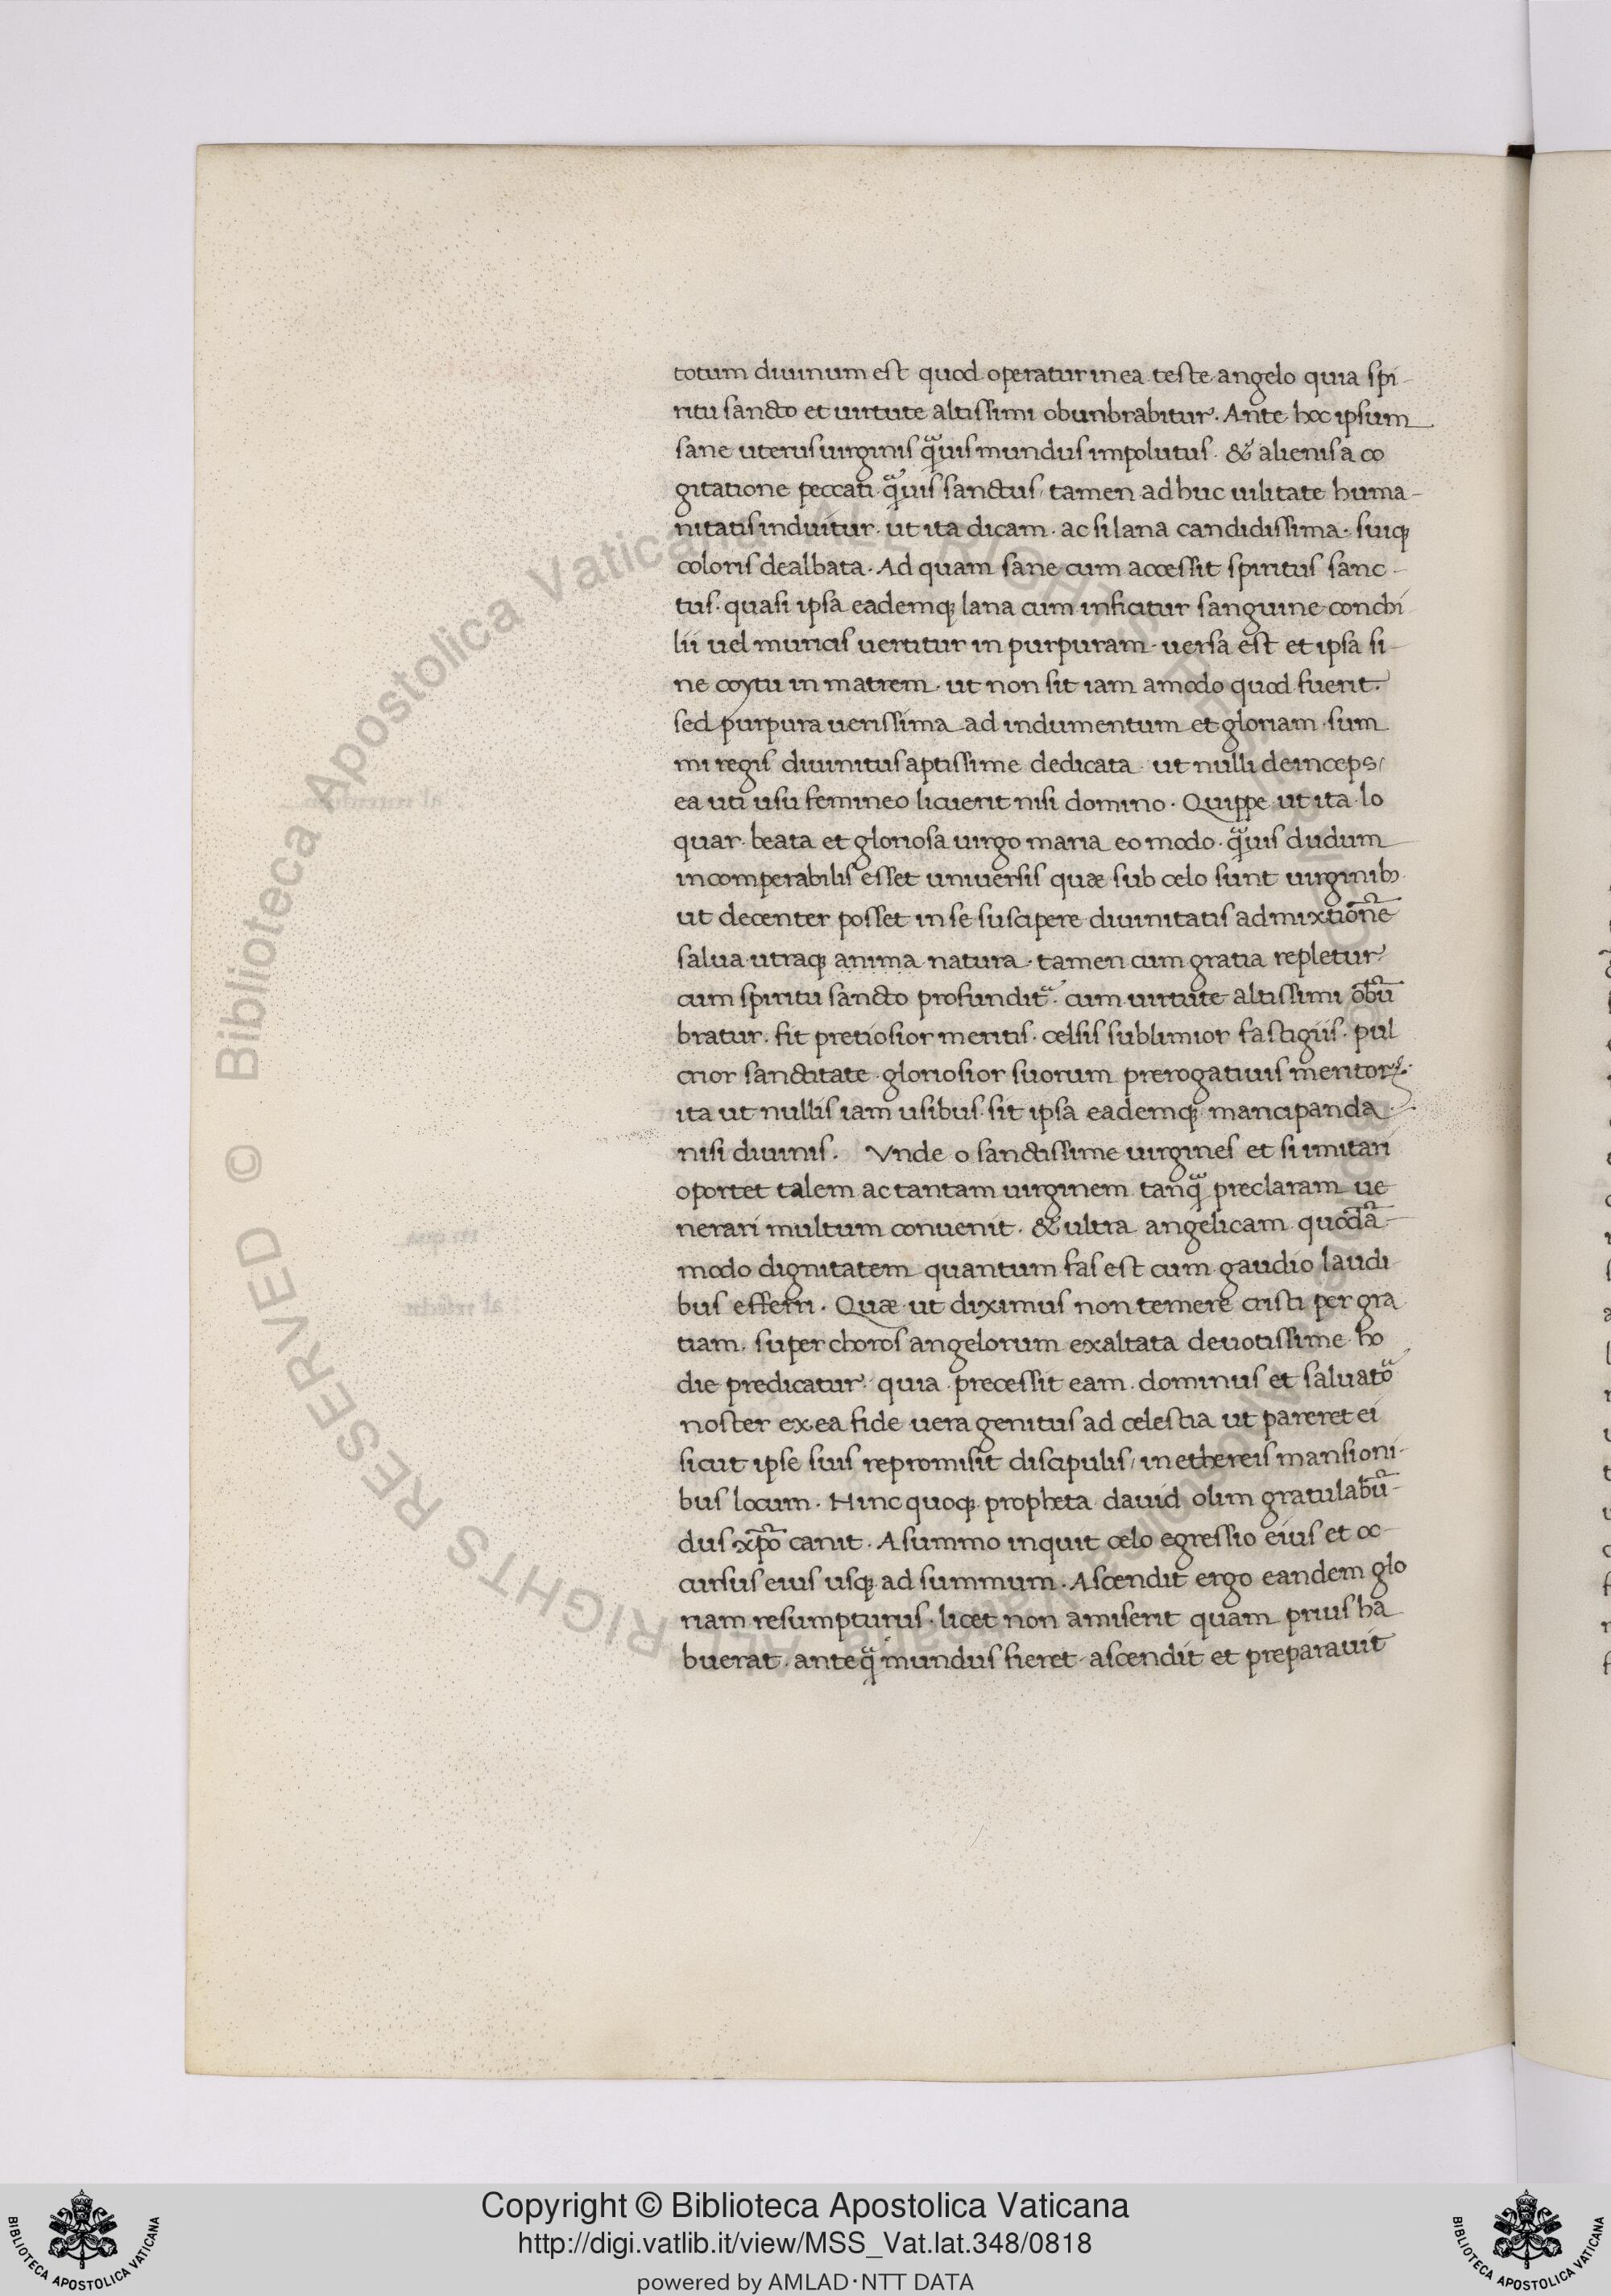 totum diuinum est quod operatur in ea teste angelo quia spi-
ritu sancto et uirtute altissimi obunbrabitur. Ante hoc ipsum
sane uterus uirginis q̃uis mundus impolutus. & alienis a co
gitatione peccati. q̃uis sanctus, tamen adhuc uilitate huma-
nitatis induitur. ut ita dicam. ac si lana candidissima. suiq;
coloris dealbata. Ad quam sane cum accessit spiritus sanc-
tus. quasi ipsa eademq; lana cum inficitur sanguine conchi
lii uel muricis uertitur in purpuram. uersa est et ipsa si-
ne coytu in matrem. ut non sit iam amodo quod fuerit.
sed purpura uerissima ad indumentum et gloriam sum
mi regis diuinitus aptissime dedicata. ut nulli deinceps,
ea uti usu femineo licuerit nisi domino. Quippe ut ita lo
quar. beata et gloriosa uirgo maria eo modo. q̃uis dudum
incomperabilis esset uniuersis quæ sub celo sunt uirginib;
ut decenter posset in se suscipere diuinitatis admixtionẽ
salua utraq; anima natura. tamen cum gratia repletur
cum spiritu sancto profundit᷑. cum uirtute altissimi obũ
bratur. fit pretiosior meritis. celsis sublimior fastigiis. pul
crior sanctitate. gloriosior suorum prerogatiuis meritoꝝ.
ita ut nullis iam usibus sit ipsa eademq; mancipanda.
nisi diuinis. Vnde o sanctissime uirgines et si imitari
oportet talem ac tantam uirginem tanq̃ preclaram ue
nerari multum conuenit. & ultra angelicam quodã-
modo dignitatem quantum fas est cum gaudio laudi
bus efferri. Quæ ut diximus non temere cristi per gra
tiam. super choros angelorum exaltata deuotissime ho
die predicatur. quia precessit eam dominus et saluato᷑
noster ex ea fide uera genitus ad celestia ut pareret ei
sicut ipse suis repromisit discipulis, in ethereis mansioni-
bus locum. Hinc quoq; propheta dauid olim gratulabũ-
dus xp̃o canit. A summo inquit celo egressio eius et oc-
cursus eius usq; ad summum. Ascendit ergo eandem glo
riam resumpturus. licet non amiserit quam prius ha
buerat. anteq̃ mundus fieret. ascendit et preparauit
Copyright © Biblioteca Apostolica Vaticana
http://digi.vatlib.it/view/MSS_Vat.lat.348/0818
powered by AMLAD·NTT DATA
BIBLIOTECA APOSTOLICA VATICANA
BIBLIOTECA APOSTOLICA VATICANA
© Biblioteca Apostolica Vaticana ALL RIGHTS RESERVED